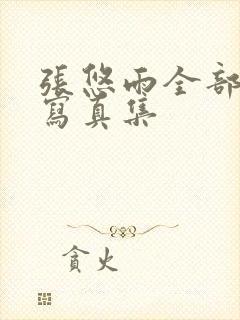 張悠雨全部
寫真集
貪火